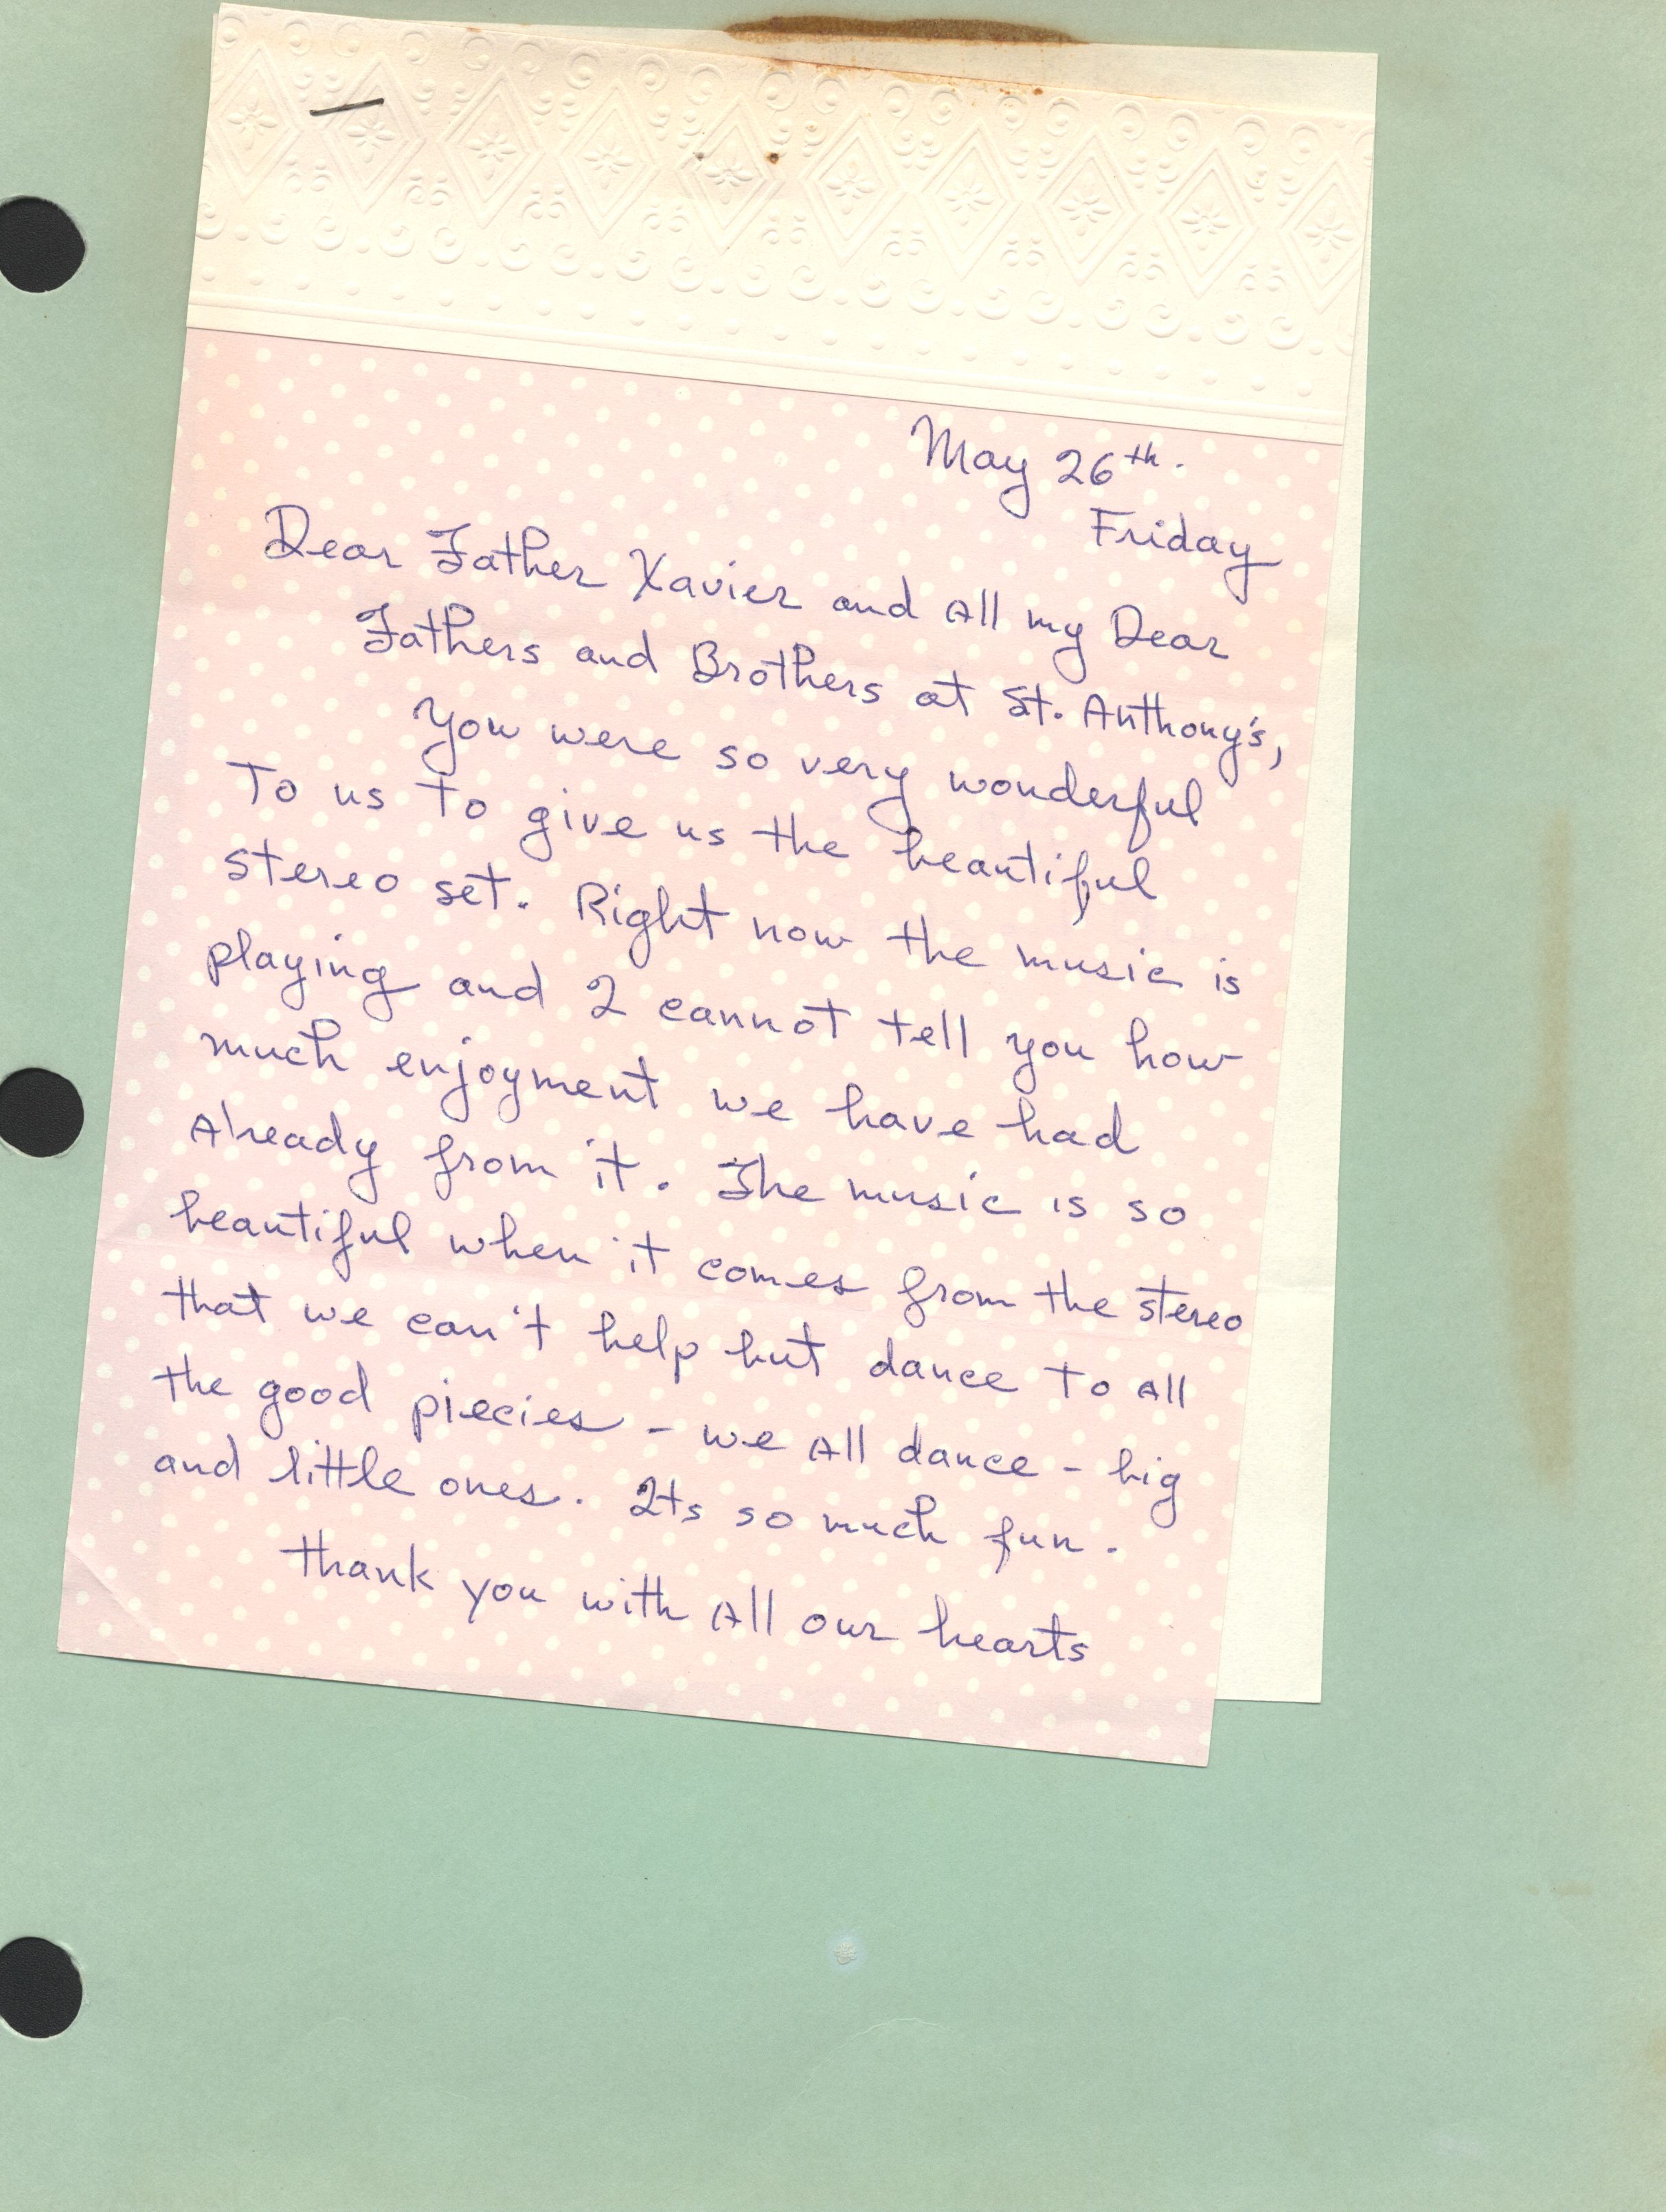 May 26th.
Friday
Dear Father Xavier and All my Dear
Fathers and Brothers at St. Anthony's,
You were so very wonderful
To us to give us the beautiful
stereo set. Right now the music is
playing and I cannot tell you how
much enjoyment we have had
Already from it. The music is so
beautiful when it comes from the stereo
that we can't help but dance to All
the good piecies - we All dance - big
and little ones. Its so much fun.
Thank you with All our hearts